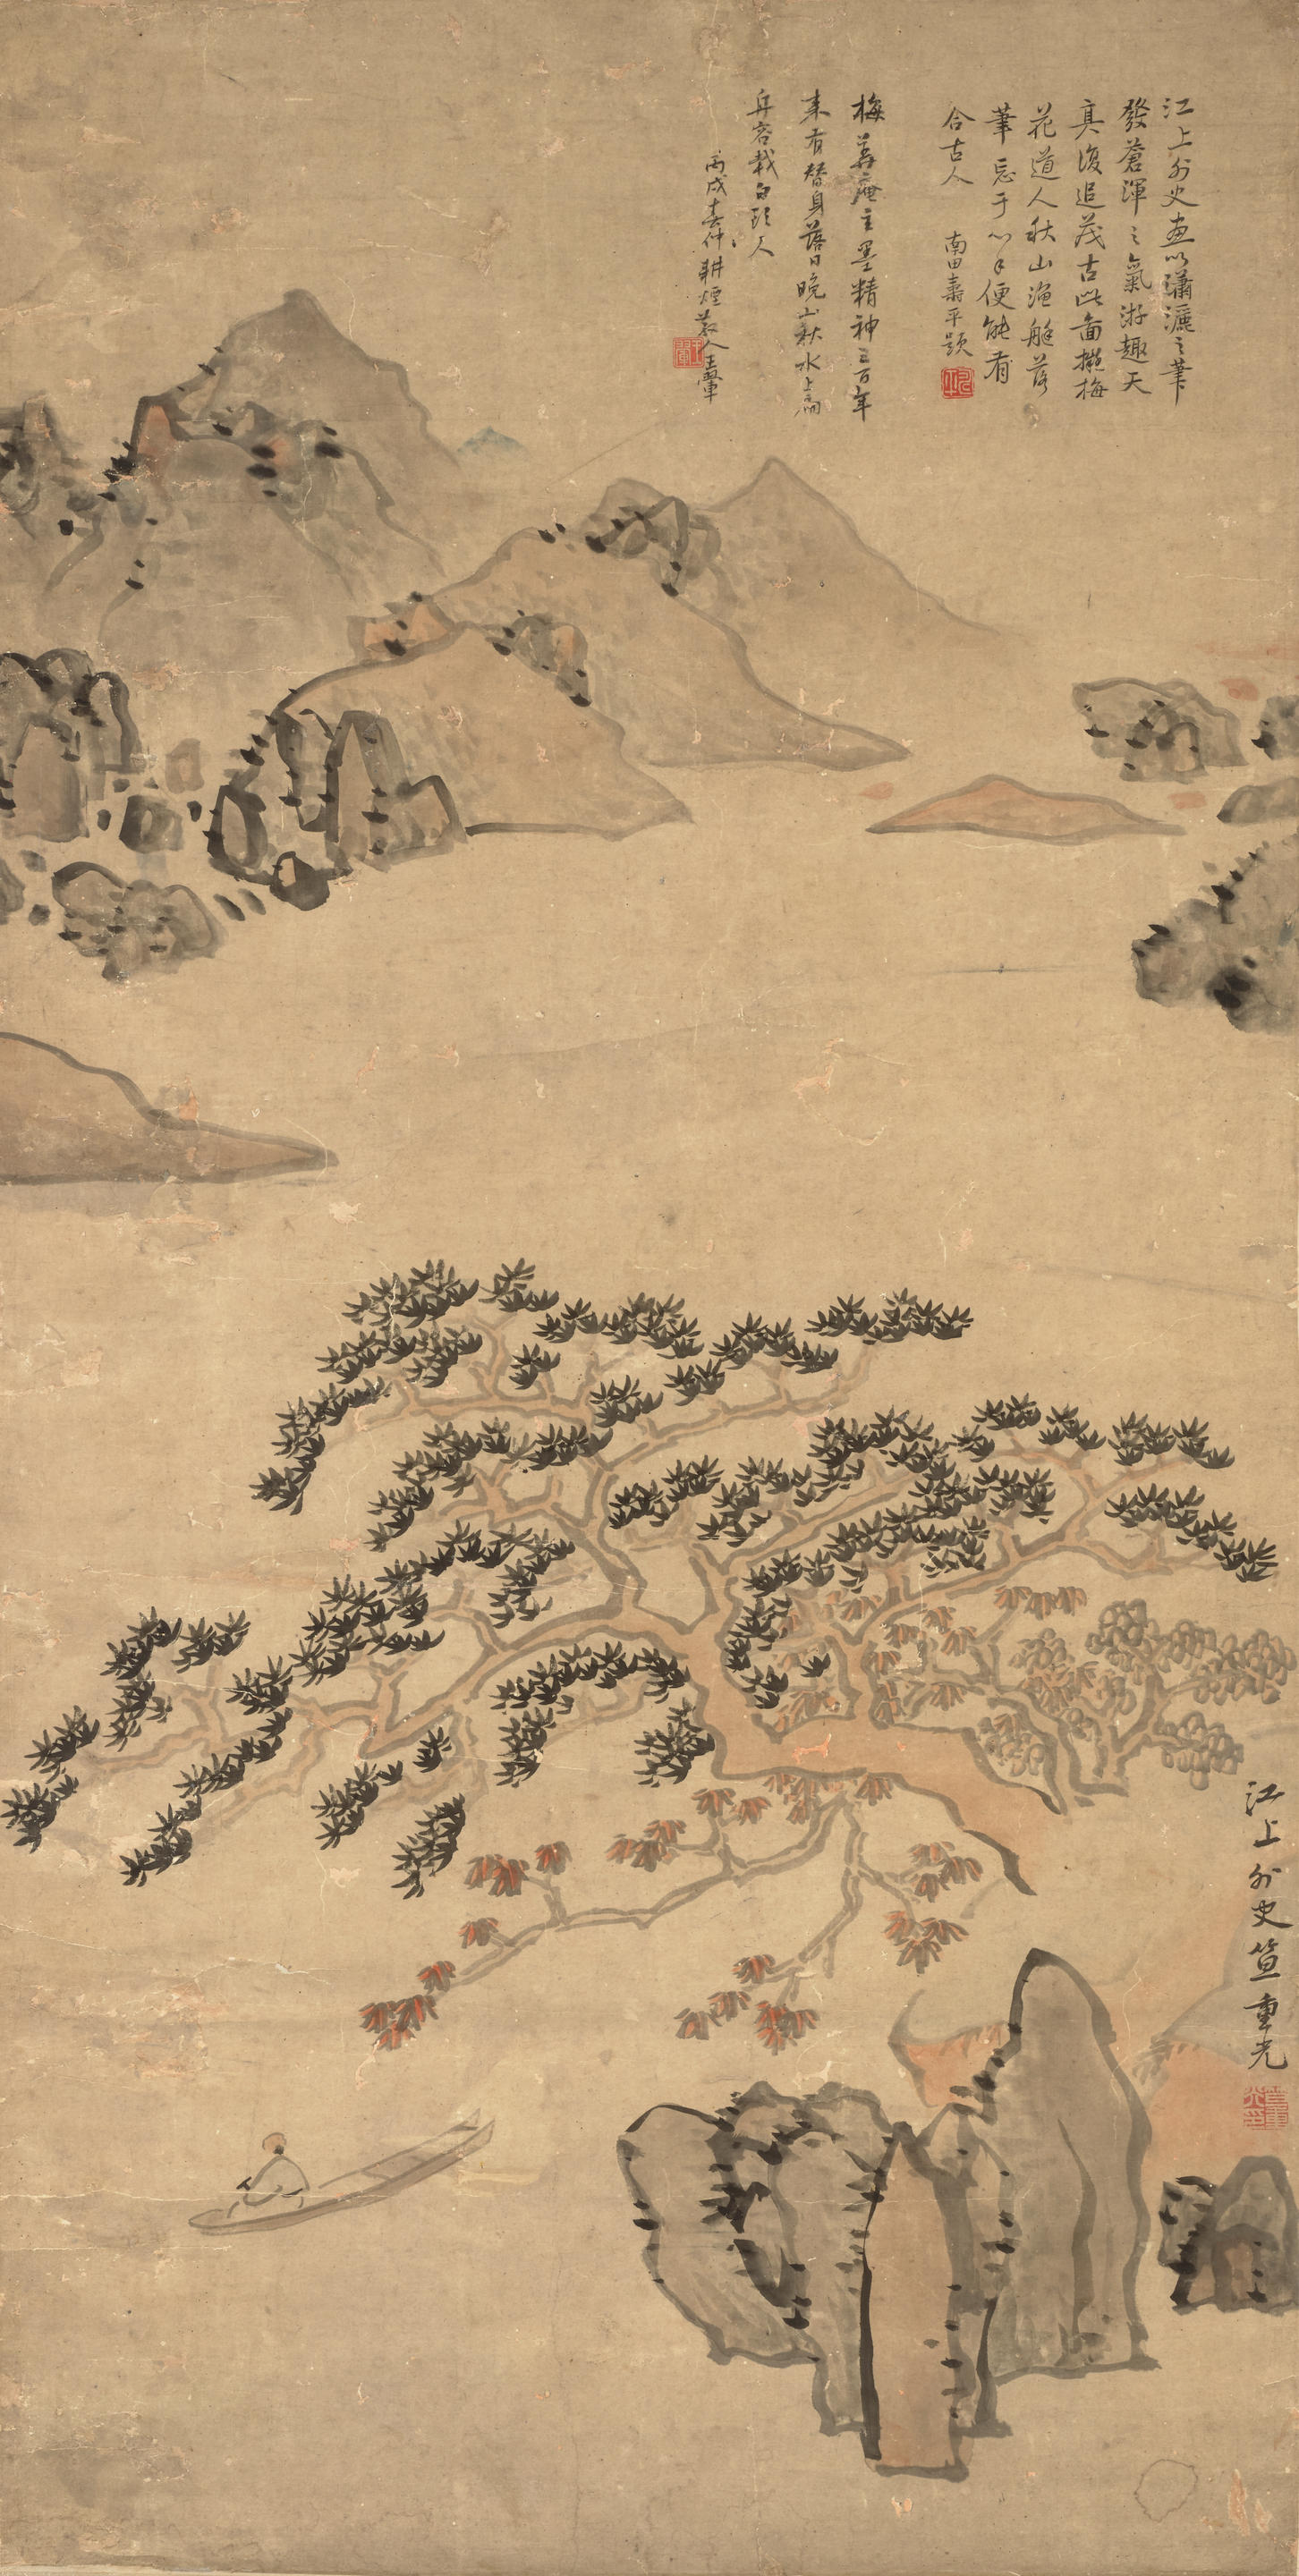 江上外史畫以瀟灑之筆
發蒼渾之氣游趣天
真復追茂古此圖擬梅
花道人秋山漁艇落
筆忘于心手便能有
合古人
南田壽平題
梅華庵主墨精神三百年
來有替身落日晚山秋水上扁
舟容載白頭人
丙戌春仲耕煙散人王翬
王翬
江上外史笪重光
笪重光印